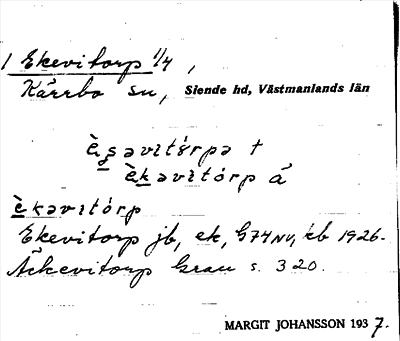 1 Ekevitorp 1/4,
Kärrbo sn, Siende hd, Västmanlands län
è̱gəvitòrpə †
è̱ḵəvitórp å
è̱kəvitórp
Ekevitorp jb, ek, G74NV, kb 1926.
Åckevitorp Grau s. 320.
MARGIT JOHANSSON 1937.